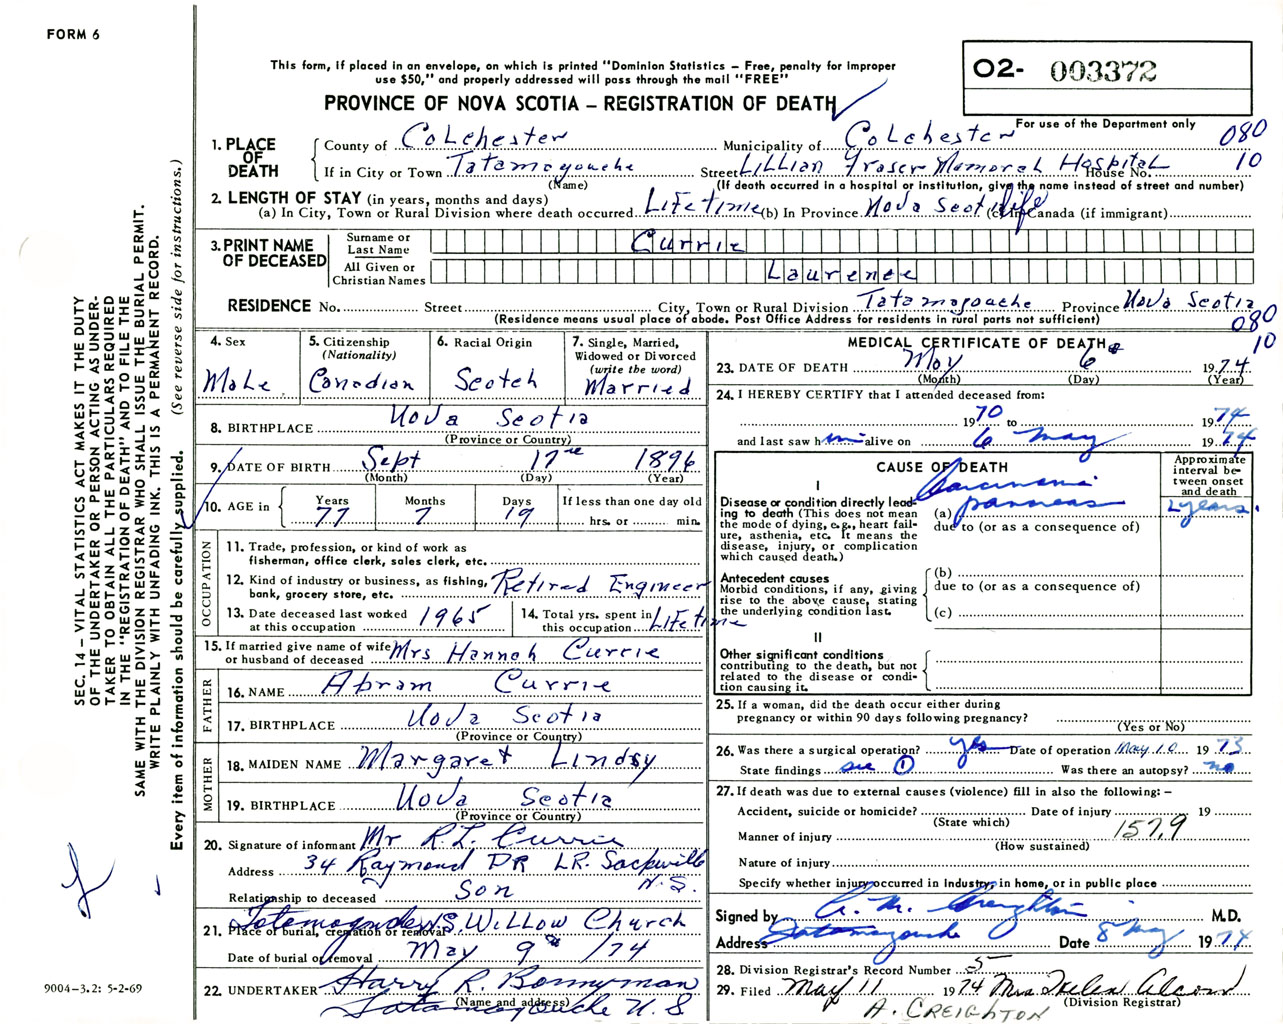 FORM 6
This form, if placed in an envelope, on which is printed "Dominion Statistics – Free, penalty for improper
use $50," and properly addressed will pass through the mail "FREE"
O2- 003372
PROVINCE OF NOVA SCOTIA – REGISTRATION OF DEATH
For use of the Department only
080
10
1. PLACE OF DEATH
County of Colchester Municipality of Colchester
If in City or Town Tatamagouche Street Lillian Fraser Memorial Hospital House No.
(Name) (If death occurred in a hospital or institution, give the name instead of street and number)
2. LENGTH OF STAY (in years, months and days)
(a) In City, Town or Rural Division where death occurred Lifetime (b) In Province Nova Scotia life (c) In Canada (if immigrant)
3. PRINT NAME OF DECEASED
Surname or Last Name Currie
All Given or Christian Names Laurence
RESIDENCE No. Street City, Town or Rural Division Tatamagouche Province Nova Scotia
(Residence means usual place of abode. Post Office Address for residents in rural parts not sufficient)
080
10
4. Sex Male
5. Citizenship (Nationality) Canadian
6. Racial Origin Scotch
7. Single, Married, Widowed or Divorced (write the word) Married
8. BIRTHPLACE Nova Scotia
(Province or Country)
9. DATE OF BIRTH Sept 17 1896
(Month) (Day) (Year)
10. AGE in Years 77 Months 7 Days 19 If less than one day old hrs. or min.
OCCUPATION
11. Trade, profession, or kind of work as
fisherman, office clerk, sales clerk, etc.
12. Kind of industry or business, as fishing,
bank, grocery store, etc. Retired Engineer
13. Date deceased last worked
at this occupation 1965
14. Total yrs. spent in
this occupation Lifetime
15. If married give name of wife
or husband of deceased Mrs Hannah Currie
FATHER
16. NAME Abram Currie
17. BIRTHPLACE Nova Scotia
(Province or Country)
MOTHER
18. MAIDEN NAME Margaret Lindsy
19. BIRTHPLACE Nova Scotia
(Province or Country)
20. Signature of informant Mr R.L. Currie
Address 34 Raymond DR LR. Sackville N.S.
Relationship to deceased Son
21. Place of burial, cremation or removal Tatamagouche N.S. Willow Church
Date of burial or removal May 9th /74
22. UNDERTAKER Harry R. Bonnyman
(Name and address) Tatamagouche N.S
MEDICAL CERTIFICATE OF DEATH
23. DATE OF DEATH May 6 1974
(Month) (Day) (Year)
24. I HEREBY CERTIFY that I attended deceased from:
1970 to 1974
and last saw him alive on 6 May 1974
CAUSE OF DEATH
Approximate interval between onset and death
I
Disease or condition directly leading to death (This does not mean
the mode of dying, e.g., heart failure, asthenia, etc. It means the
disease, injury, or complication
which caused death.)
(a) Carcinoma pancreas
due to (or as a consequence of)
years.
Antecedent causes
Morbid conditions, if any, giving
rise to the above cause, stating
the underlying condition last.
(b)
due to (or as a consequence of)
(c)
II
Other significant conditions
contributing to the death, but not
related to the disease or condition causing it.
25. If a woman, did the death occur either during
pregnancy or within 90 days following pregnancy?
(Yes or No)
26. Was there a surgical operation? yes Date of operation May 10 1973
State findings see 1 Was there an autopsy? no
27. If death was due to external causes (violence) fill in also the following: –
Accident, suicide or homicide? Date of injury 19
(State which)
Manner of injury 157.9
(How sustained)
Nature of injury
Specify whether injury occurred in Industry, in home, or in public place
Signed by A. M. Creighton M.D.
Address Tatamagouche Date 8 May 1974
28. Division Registrar's Record Number 5
29. Filed May 11 1974 Mrs Helen
(Division Registrar)
A. CREIGHTON
SEC. 14 – VITAL STATISTICS ACT MAKES IT THE DUTY
OF THE UNDERTAKER OR PERSON ACTING AS UNDER-
TAKER TO OBTAIN ALL THE PARTICULARS REQUIRED
IN THE "REGISTRATION OF DEATH" AND TO FILE THE
SAME WITH THE DIVISION REGISTRAR WHO SHALL ISSUE THE BURIAL PERMIT.
WRITE PLAINLY WITH UNFADING INK. THIS IS A PERMANENT RECORD.
Every item of information should be carefully supplied. (See reverse side for instructions.)
9004-3.2: 5-2-69